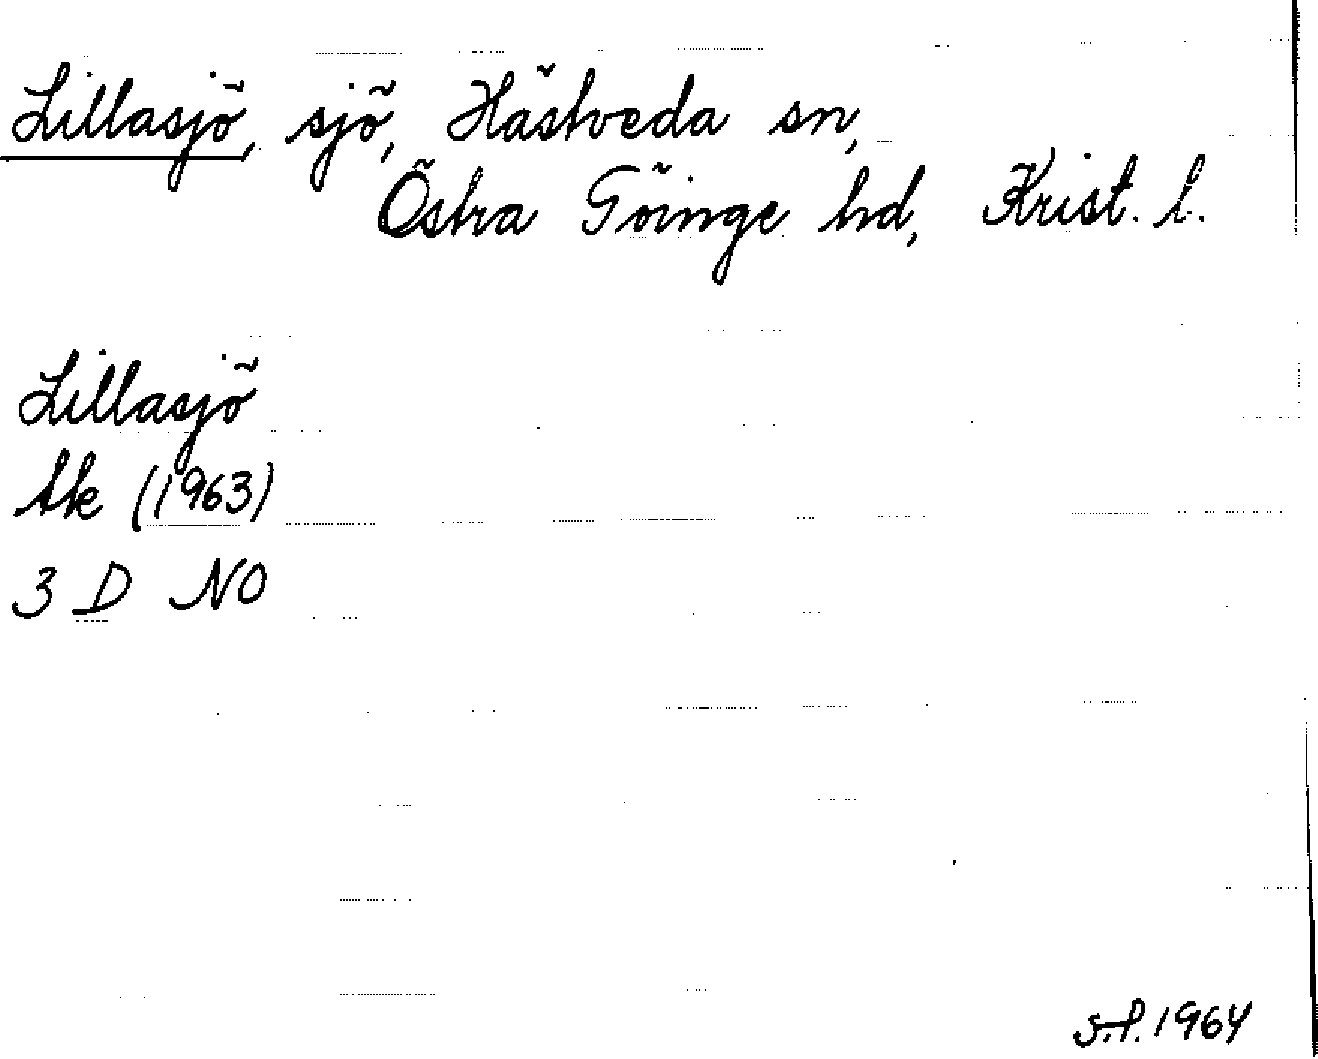 Lillasjö, sjö, Hästveda sn,
Östra Göinge hd, Krist. l.
Lillasjö
tk (1963)
3 D NO
s.f. 1964